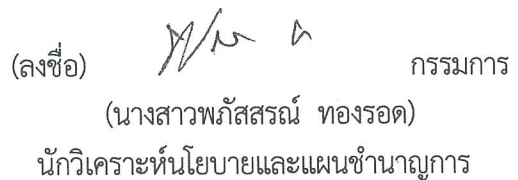 (ลงชื่อ) กรรมการ
(นางสาวพภัสสรณ์ ทองรอด)
นักวิเคราะห์นโยบายและแผนชำนาญการ